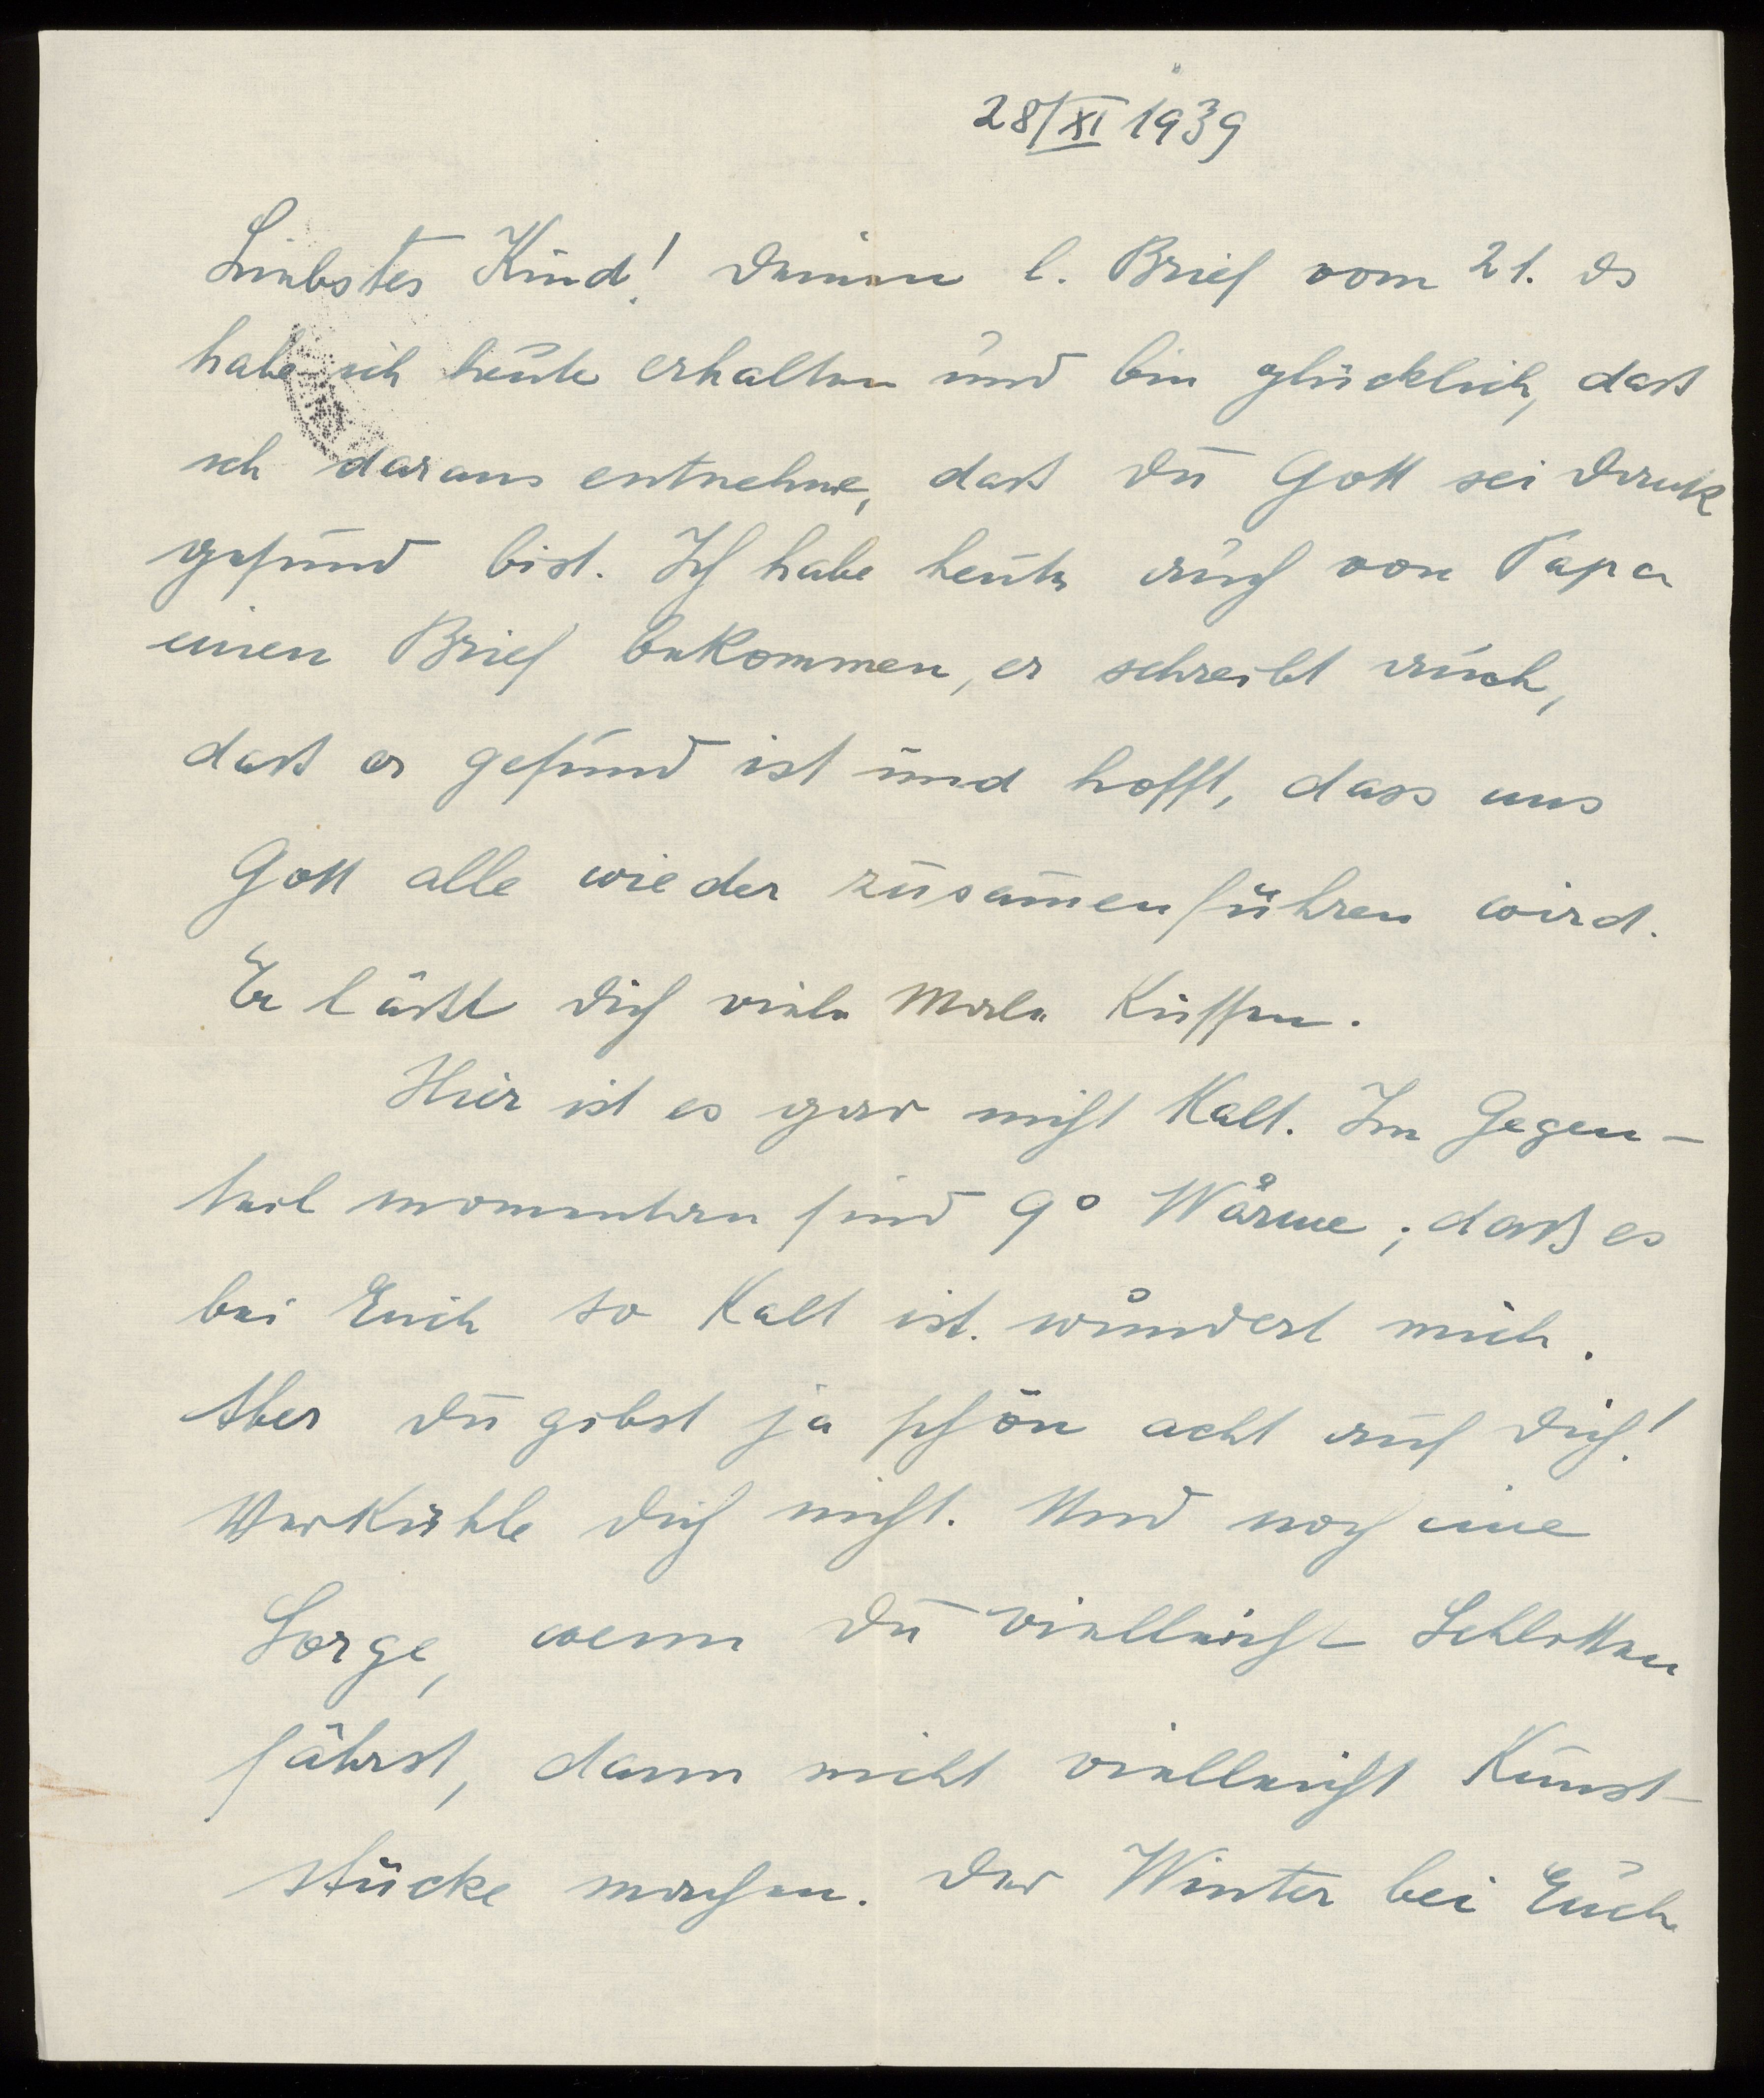 28/XI 1939
Liebstes Kind! Deinen l. Brief vom 21. ds
habe ich heute erhalten und bin glücklich, daß
ich daraus entnehme, daß Du Gott sei Dank
gesund bist. Ich habe heute auch von Papa
einen Brief bekommen, er schreibt auch,
daß er gesund ist und hofft, dass uns
Gott alle wieder zusam̄enführen wird.
Er läßt Dich viele Male Küssen.
Hier ist es gar nicht Kalt. Im Gegen-
teil momentan sind 9° Wärme; daß es
bei Euch so Kalt ist. wundert mich.
Aber Du gibst ja schön acht auf Dich!
VerKühle Dich nicht. Und noch eine
Sorge, wenn Du vielleicht Schlitten
fährst, dann nicht vielleicht Kunst-
stücke machen. Der Winter bei Euch